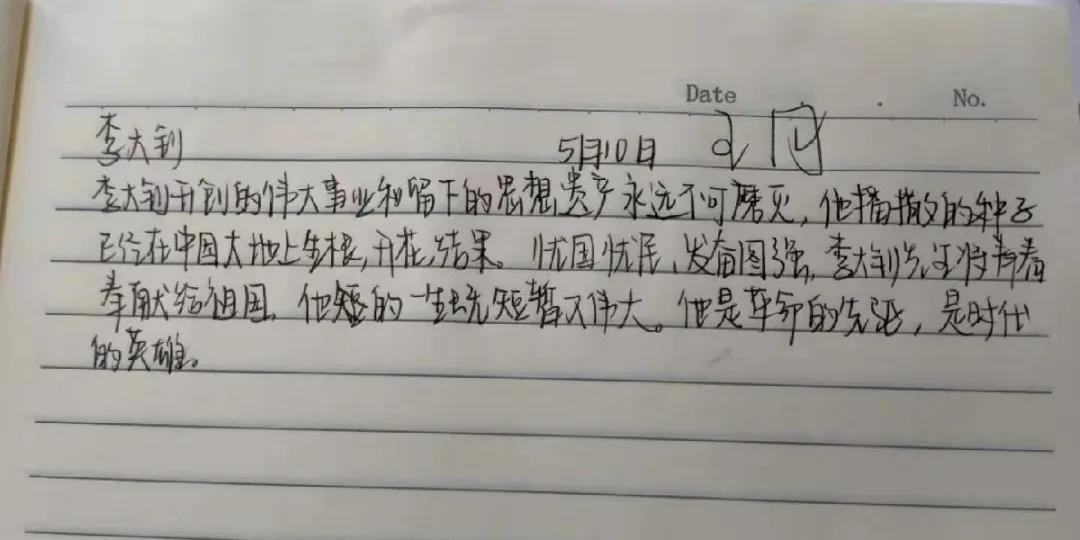 Date No.
李大钊 5月10日
李大钊开创的伟大事业和留下的思想遗产永远不可磨灭，他播撒的种子
已经在中国大地上生根，开花，结果。忧国忧民、发奋图强，李大钊先生将青春
奉献给祖国，他短的一生既短暂又伟大。他是革命的先驱，是时代
的英雄。